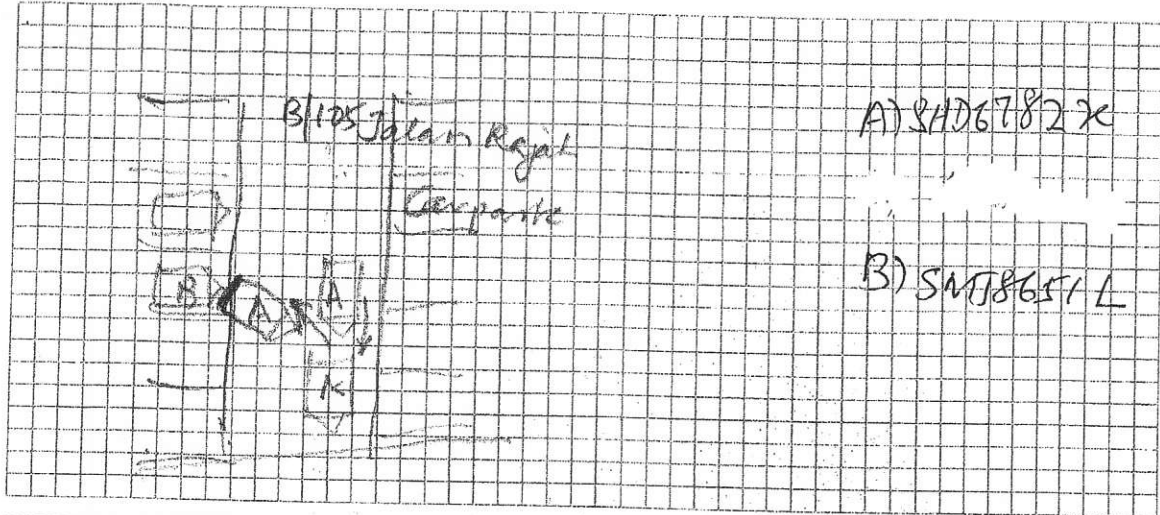 B/105 Jalan Rajah
Carpark
A) SHD6782X
B) SMJ8651L
B
A
A
A